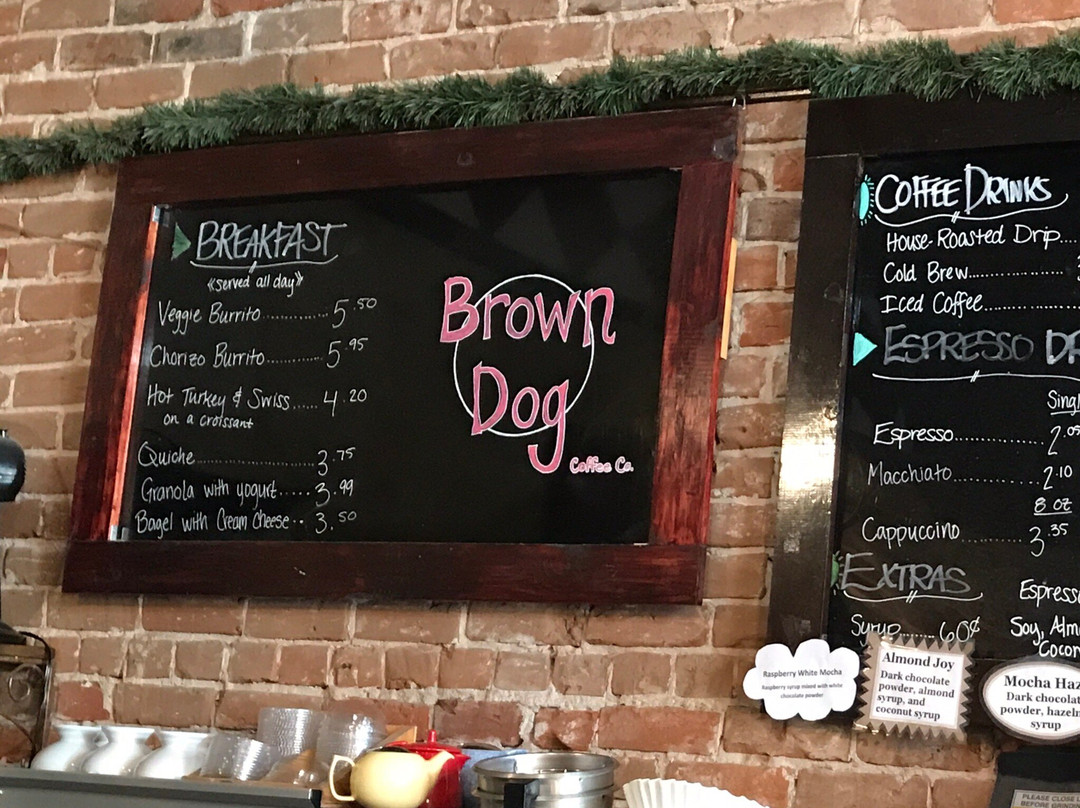 BREAKFAST
«served all day»
Veggie Burrito............... 5.50
Chorizo Burrito............ 5.95
Hot Turkey & Swiss...... 4.20
on a croissant
Quiche........................ 3.75
Granola with yogurt..... 3.99
Bagel with Cream Cheese.. 3.50
Brown
Dog
Coffee Co.
COFFEE DRINKS
House-Roasted Drip....
Cold Brew...............
Iced Coffee...............
ESPRESSO
Espresso............... 2.05
Macchiato............ 2.10
8 oz
Cappuccino.......... 3.35
EXTRAS
Syrup........ 60¢
Soy,
Raspberry White Mocha
Raspberry syrup mixed with white
chocolate powder
Almond Joy
Dark chocolate
powder, almond
syrup, and
coconut syrup
Mocha
Dark
powder,
syrup
PLEASE CLOSE
BEFORE